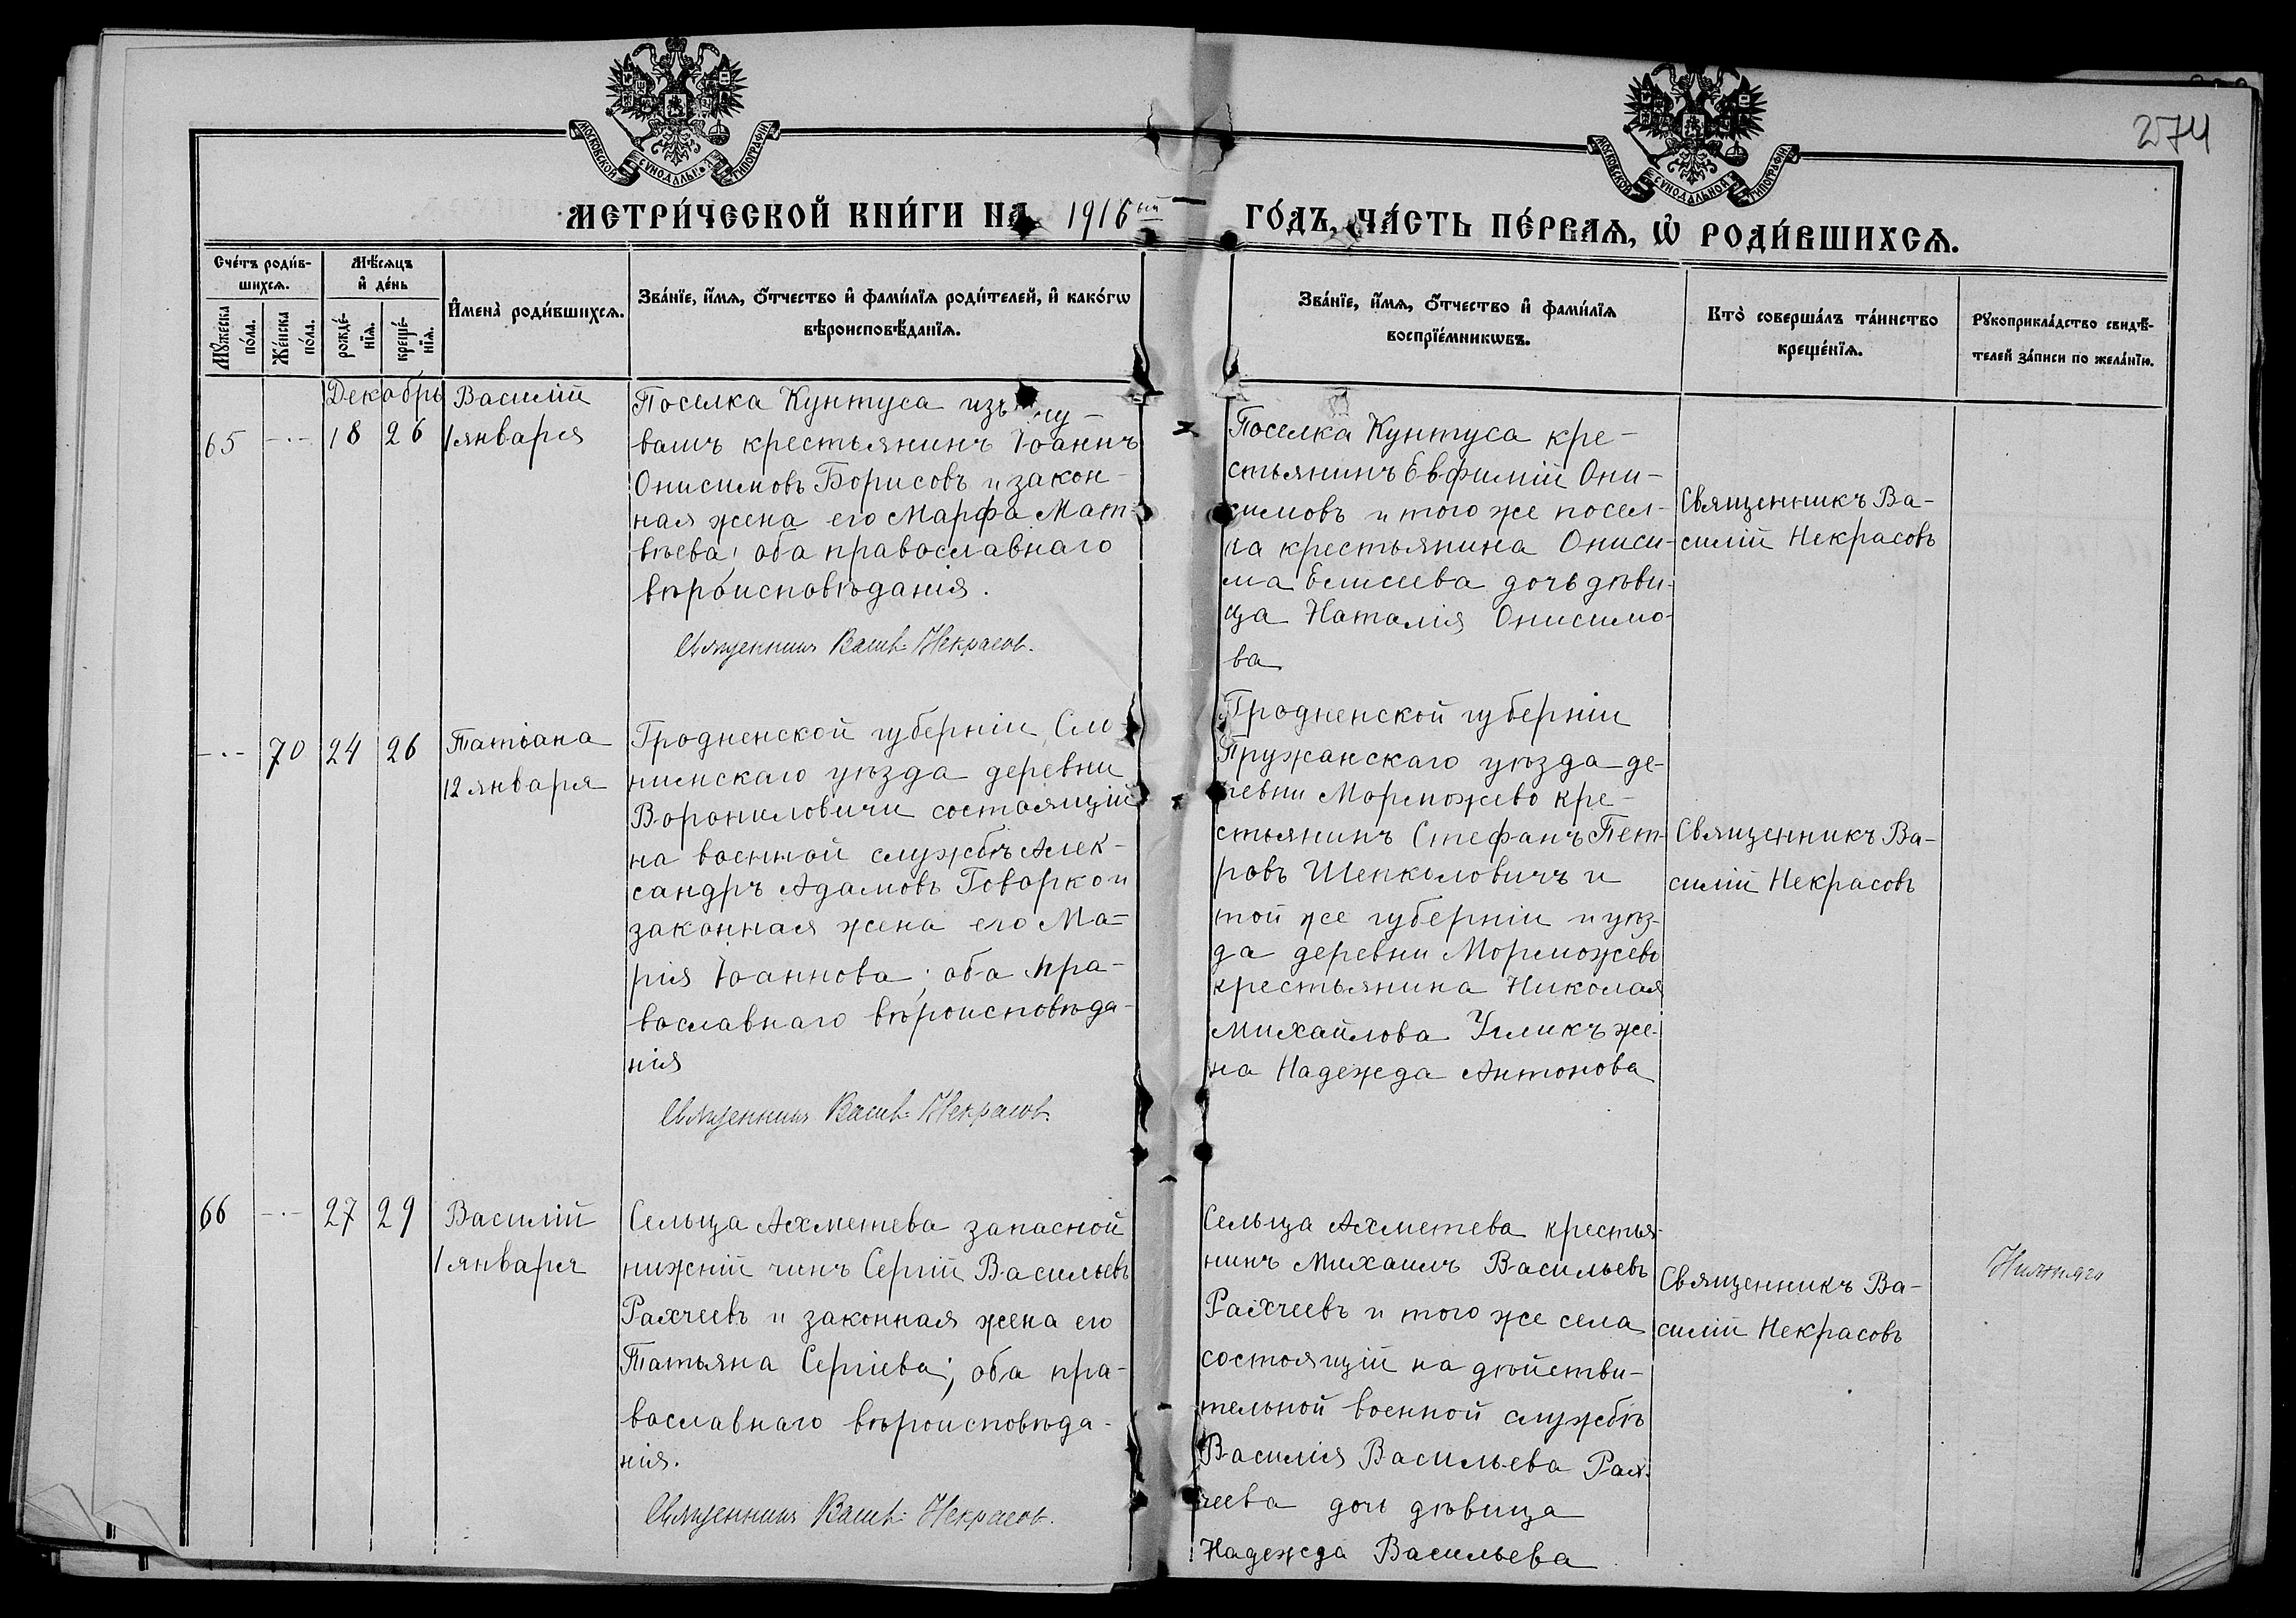 274
МОСКОВСКОЙ СѴНОДАЛЬНОЙ ТИПОГРАФІИ
МОСКОВСКОЙ СѴНОДАЛЬНОЙ ТИПОГРАФІИ
МЕТРИ́ЧЕСКОЙ КНИ́ГИ НА 1916ый ГО́ДЪ, ЧА́СТЬ ПЕ́РВАѦ, Ѡ҆ РОДИ́ВШИХСѦ.
Сче́тъ роди́в-
шихсѧ.
Мꙋ́жеска
по́ла.
Же́нска
по́ла.
Мѣ́сѧцъ
и҆ де́нь
рожде́-
нїѧ.
креще́-
нїѧ.
И҆мена̀ роди́вшихсѧ.
Зва́нїе, и҆́мѧ, ѻ҆́тчество и҆ фами́лїѧ роди́телей, и҆ како́гѡ
вѣроисповѣ́данїѧ.
Зва́нїе, и҆́мѧ, ѻ҆́тчество и҆ фами́лїѧ
воспрїе́мникѡвъ.
Кто̀ соверша́лъ та́инство
креще́нїѧ.
Рꙋкоприкла́дство свидѣ́-
телей за́писи по жела́нїю.
Декабрь
65 -·- 18 26
Василій
1 января
Поселка Кунтуса изъ чу-
вашъ крестьянинъ Іоаннъ
Онисимовъ Борисовъ и закон-
ная жена его Марфа Мат-
вѣева; оба православнаго
вѣроисповѣданія.
Священникъ Васил. Некрасов.
Поселка Кунтуса кре-
стьянинъ Евфимій Они-
симовъ и того же посел-
ка крестьянина Ониси-
ма Елисеева дочь дѣви-
ца Наталія Онисимо-
ва
Священникъ Ва-
силій Некрасовъ
-·- 70 24 26
Татіана
12 января
Гродненской губерніи Сло-
нимскаго уѣзда деревни
Ворониловичи состоящій
на военной службѣ Алек-
сандръ Адамовъ Говорко и
законная жена его Ма-
рія Іоаннова; оба пра-
вославнаго вѣроисповѣда-
нія
Священникъ Васил. Некрасов.
Гродненской губерніи
Пружанскаго уѣзда де-
ревни Морможево кре-
стьянинъ Стефанъ Пет-
ровъ и
той же губерніи и уѣз-
да деревни Морможево
крестьянина Николая
Михайлова же-
на Надежда Антонова
Священникъ Ва-
силій Некрасовъ
66 -·- 27 29
Василій
1 января
Сельца Ахметева запасной
нижній чинъ Сергій Васильевъ
Рахчеевъ и законная жена его
Татьяна Сергіева; оба пра-
вославнаго вѣроисповѣда-
нія.
Священникъ Васил. Некрасов.
Сельца Ахметева крестья-
нинъ Михаилъ Васильевъ
Рахчеевъ и того же села
состоящій на дѣйстви-
тельной военной службѣ
Василія Васильева Рах-
чеева дочь дѣвица
Надежда Васильева
Священникъ Ва-
силій Некрасовъ